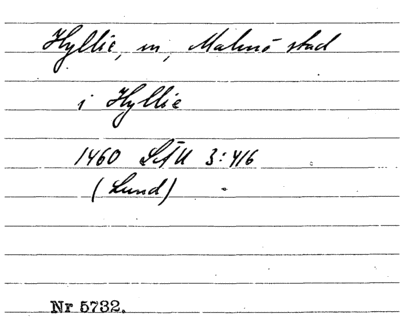 Hyllie, m, Malmö stad
i Hyllie
1460 LÄU 3:416
(Lund)
Nr 5732.